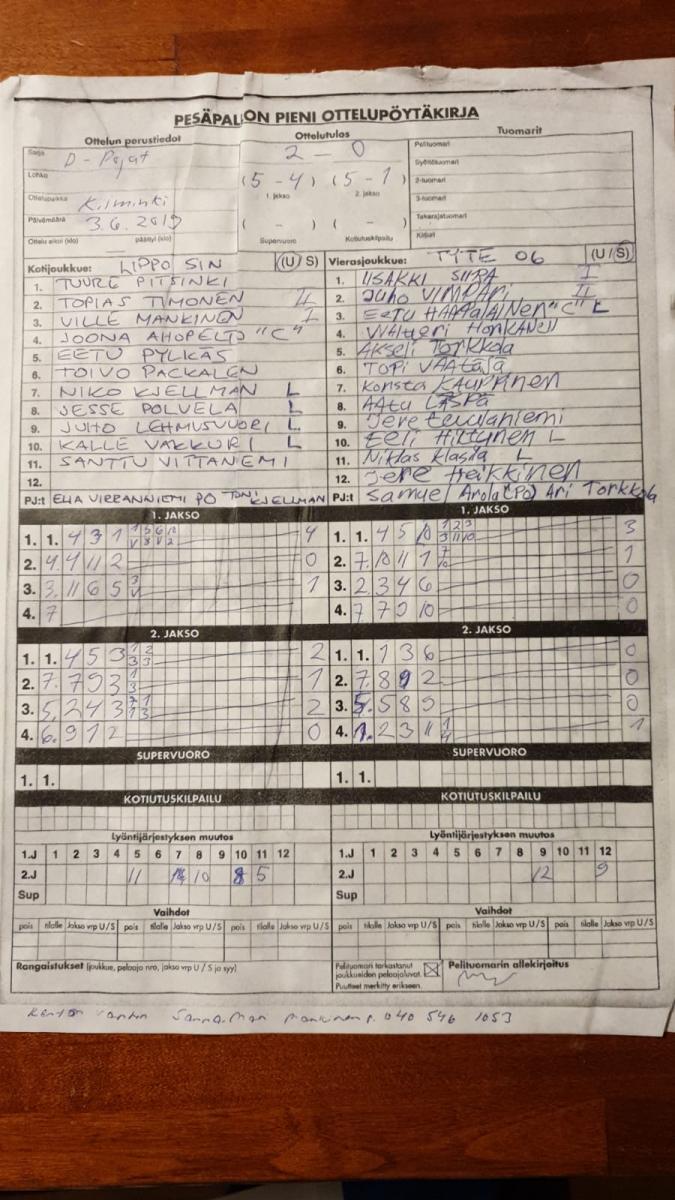 PESÄPALLON PIENI OTTELUPÖYTÄKIRJA
Ottelun perustiedot
Ottelutulos
Tuomarit
Sarja D-Pojat
Lohko
Ottelupaikka Kiiminki
Päivämäärä 3.6.2019
Ottelu alkoi (klo) päättyi (klo)
2 - 0
(5-4) (5-1)
1. jakso 2. jakso
( - ) ( - )
Supervuoro Kotiutuskilpailu
Pelituomari
Syöttötuomari
2-tuomari
3-tuomari
Takarajatuomari
Kirjuri
Kotijoukkue: LIPPO SIN (U S)
1. TUURE PITSINKI
2. TOPIAS TIMONEN II
3. VILLE MANKINEN I
4. JOONA AHOPELTO "C"
5. EETU PYLKÄS
6. TOIVO PACKALEN
7. NIKO KJELLMAN L
8. JESSE POLVELA L
9. JUHO LEHMUSVUORI L
10. KALLE VAKKURI L
11. SANTTU VITTANIEMI
12.
PJ:t ELIA VIRRANNIEMI PO TONI KJELLMAN
Vierasjoukkue: TYTE 06 (U/S)
1. IISAKKI SIIRA I
2. Juho VIMPARI II
3. EETU HAAPALAINEN "C" L
4. Valtteri HONKANEN
5. Akseli Torkkola
6. TOPI VÄÄTÄJÄ
7. Konsta KAUPPINEN
8. AAtu LÄSPÄ
9. Jere Euulaniemi
10. Eeli Hiltunen L
11. Niklas Klasila L
12. Jere Heikkinen
PJ:t Samuel Arola (PO) Ari Torkkola
1. JAKSO
1. 1. 4 3 1 4
2. 4 4 11 2 0
3. 3. 11 6 5 1
4. 7
2. JAKSO
1. 1. 4 5 3 2
2. 7. 7 9 3 1
3. 5. 2 4 3 2
4. 6. 9 1 2 0
SUPERVUORO
1. 1.
KOTIUTUSKILPAILU
1. JAKSO
1. 1. 4 5 10 3
2. 7. 10 11 1 1
3. 2 3 4 6 0
4. 7 7 9 10 0
2. JAKSO
1. 1. 1 3 6 0
2. 7. 8 9 2 0
3. 5. 5 8 9 0
4. 1. 2 3 11 1
SUPERVUORO
1. 1.
KOTIUTUSKILPAILU
Lyöntijärjestyksen muutos
1.J 1 2 3 4 5 6 7 8 9 10 11 12
2.J 11 10 8 5
Sup
Vaihdot
pois tilalle Jakso vrp U/S pois tilalle Jakso vrp U/S pois tilalle Jakso vrp U/S
Rangaistukset (joukkue, pelaaja nro, jakso vrp U / S ja syy)
Lyöntijärjestyksen muutos
1.J 1 2 3 4 5 6 7 8 9 10 11 12
2.J 12 9
Sup
Vaihdot
pois tilalle Jakso vrp U/S pois tilalle Jakso vrp U/S pois tilalle Jakso vrp U/S
Pelituomari tarkastanut
joukkueiden pelaajaluvat.
Puutteet merkitty erikseen.
Pelituomarin allekirjoitus
Sanna-Mari Mankinen p. 040 546 1053